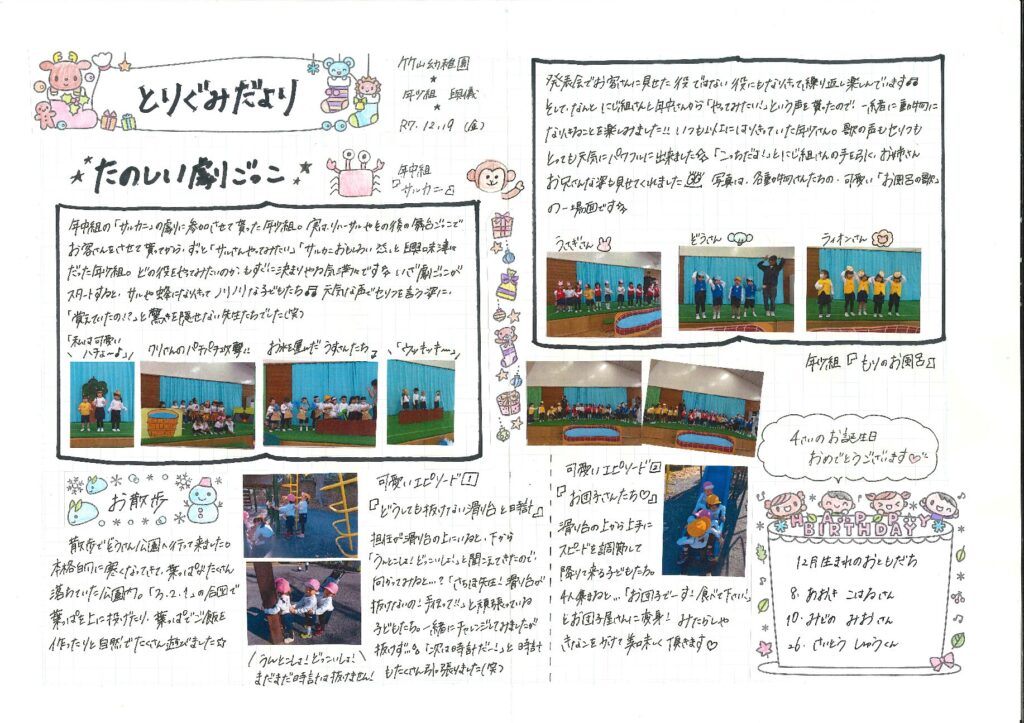 とりぐみだより
竹山幼稚園
年少組 興儀
R7.12.19 (金)
たのしい劇ごっこ
年中組
『サルカニ』
年中組の「サルカニ」の劇に参加させて貰った年少組。実はリハーサルやその後の舞台ごっこで
お客さんをさせて貰ってから、ずっと「サルさんやってみたい」「サルカニおもしろい」と興味津々
だった年少組。どの役をやってみたいのか、もすぐに決まりやる気に満々です いざ劇ごっこが
スタートすると、サルや蜂になりきって ノリノリな子どもたち♫ 元気な声でセリフを言う姿に、
「覚えていたの!?」と驚きを隠せない先生たちでした(笑)
「私は可愛い
ハチよ〜」
クリさんのパチパチ攻撃!!
お水を運んだ うすさんたち
「ウッキッキー」
発表会でお客さんに見せた役ではない役にもなりきって、繰り返し楽しんでいます♫
そして、なんと にじ組さんと年中さんから「やってみたい!」という声を貰ったので! 一緒に動物に
なりきることを楽しみました!! いつも以上にはりきっていた年少さん。歌の声もセリフも
とっても元気にパワフルに出来ました☆ 「こっちだよ!」とにじ組さんの手を引く、お姉さん
お兄さんな姿も見せてくれました 写真は、各動物さんたちの、可愛い「お風呂の歌」
の一場面です☆
うさぎさん
ぞうさん
ライオンさん
年少組『もりのお風呂』
お散歩
散歩でぞうさん公園へ行って来ました。
本格的に寒くなってきて、葉っぱがたくさん
落ちていた公園内。「3.2.1」の合図で
葉っぱを上に投げたり、葉っぱでご飯を
作ったりと自然でたくさん遊びました☆
うんとこしょ! どっこいしょ!
まだまだ時計は抜けません!
可愛いエピソード1
『どうしても抜けない滑り台と時計』
担任が滑り台の上にいると、下から
「うんとこしょ! どっこいしょ!」と聞こえてきたので、
何かってみると…? 「さちほ先生! 滑り台が
抜けないの! 手伝って!!」と頑張っている
子どもたち。一緒にチャレンジしてみましたが
抜けず…。「次は時計だー!」と時計
もたくさん引っ張りました(笑)
可愛いエピソード2
『お団子さんたち♡』
滑り台の上から上手に
スピードを調節して
降りて来る子どもたち。
4人集まると…「お団子でーす! 食べて下さい!」
とお団子屋さんに変身! みたらしや
きなこをかけて美味しく頂きます♡
4さいのお誕生日
おめでとうございます♡
HAPPY
BIRTHDAY
12月生まれのおともだち
8. あおき こはるさん
10. みぞの みおさん
26. さいとう しゅうくん